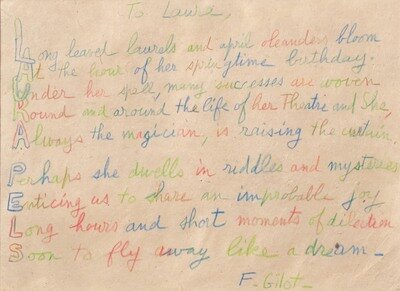 To Laura,
Long leaved laurels and april oleanders bloom
At the hour of her springtime birthday.
Under her spell, many successes are woven
Round and around the life of her Theatre and She,
Always the magician, is raising the curtain.
Perhaps she dwells in riddles and mysteries
Enticing us to share an improbable joy
Long hours and short moments of dilection
Soon to fly away like a dream_
F_Gilot_